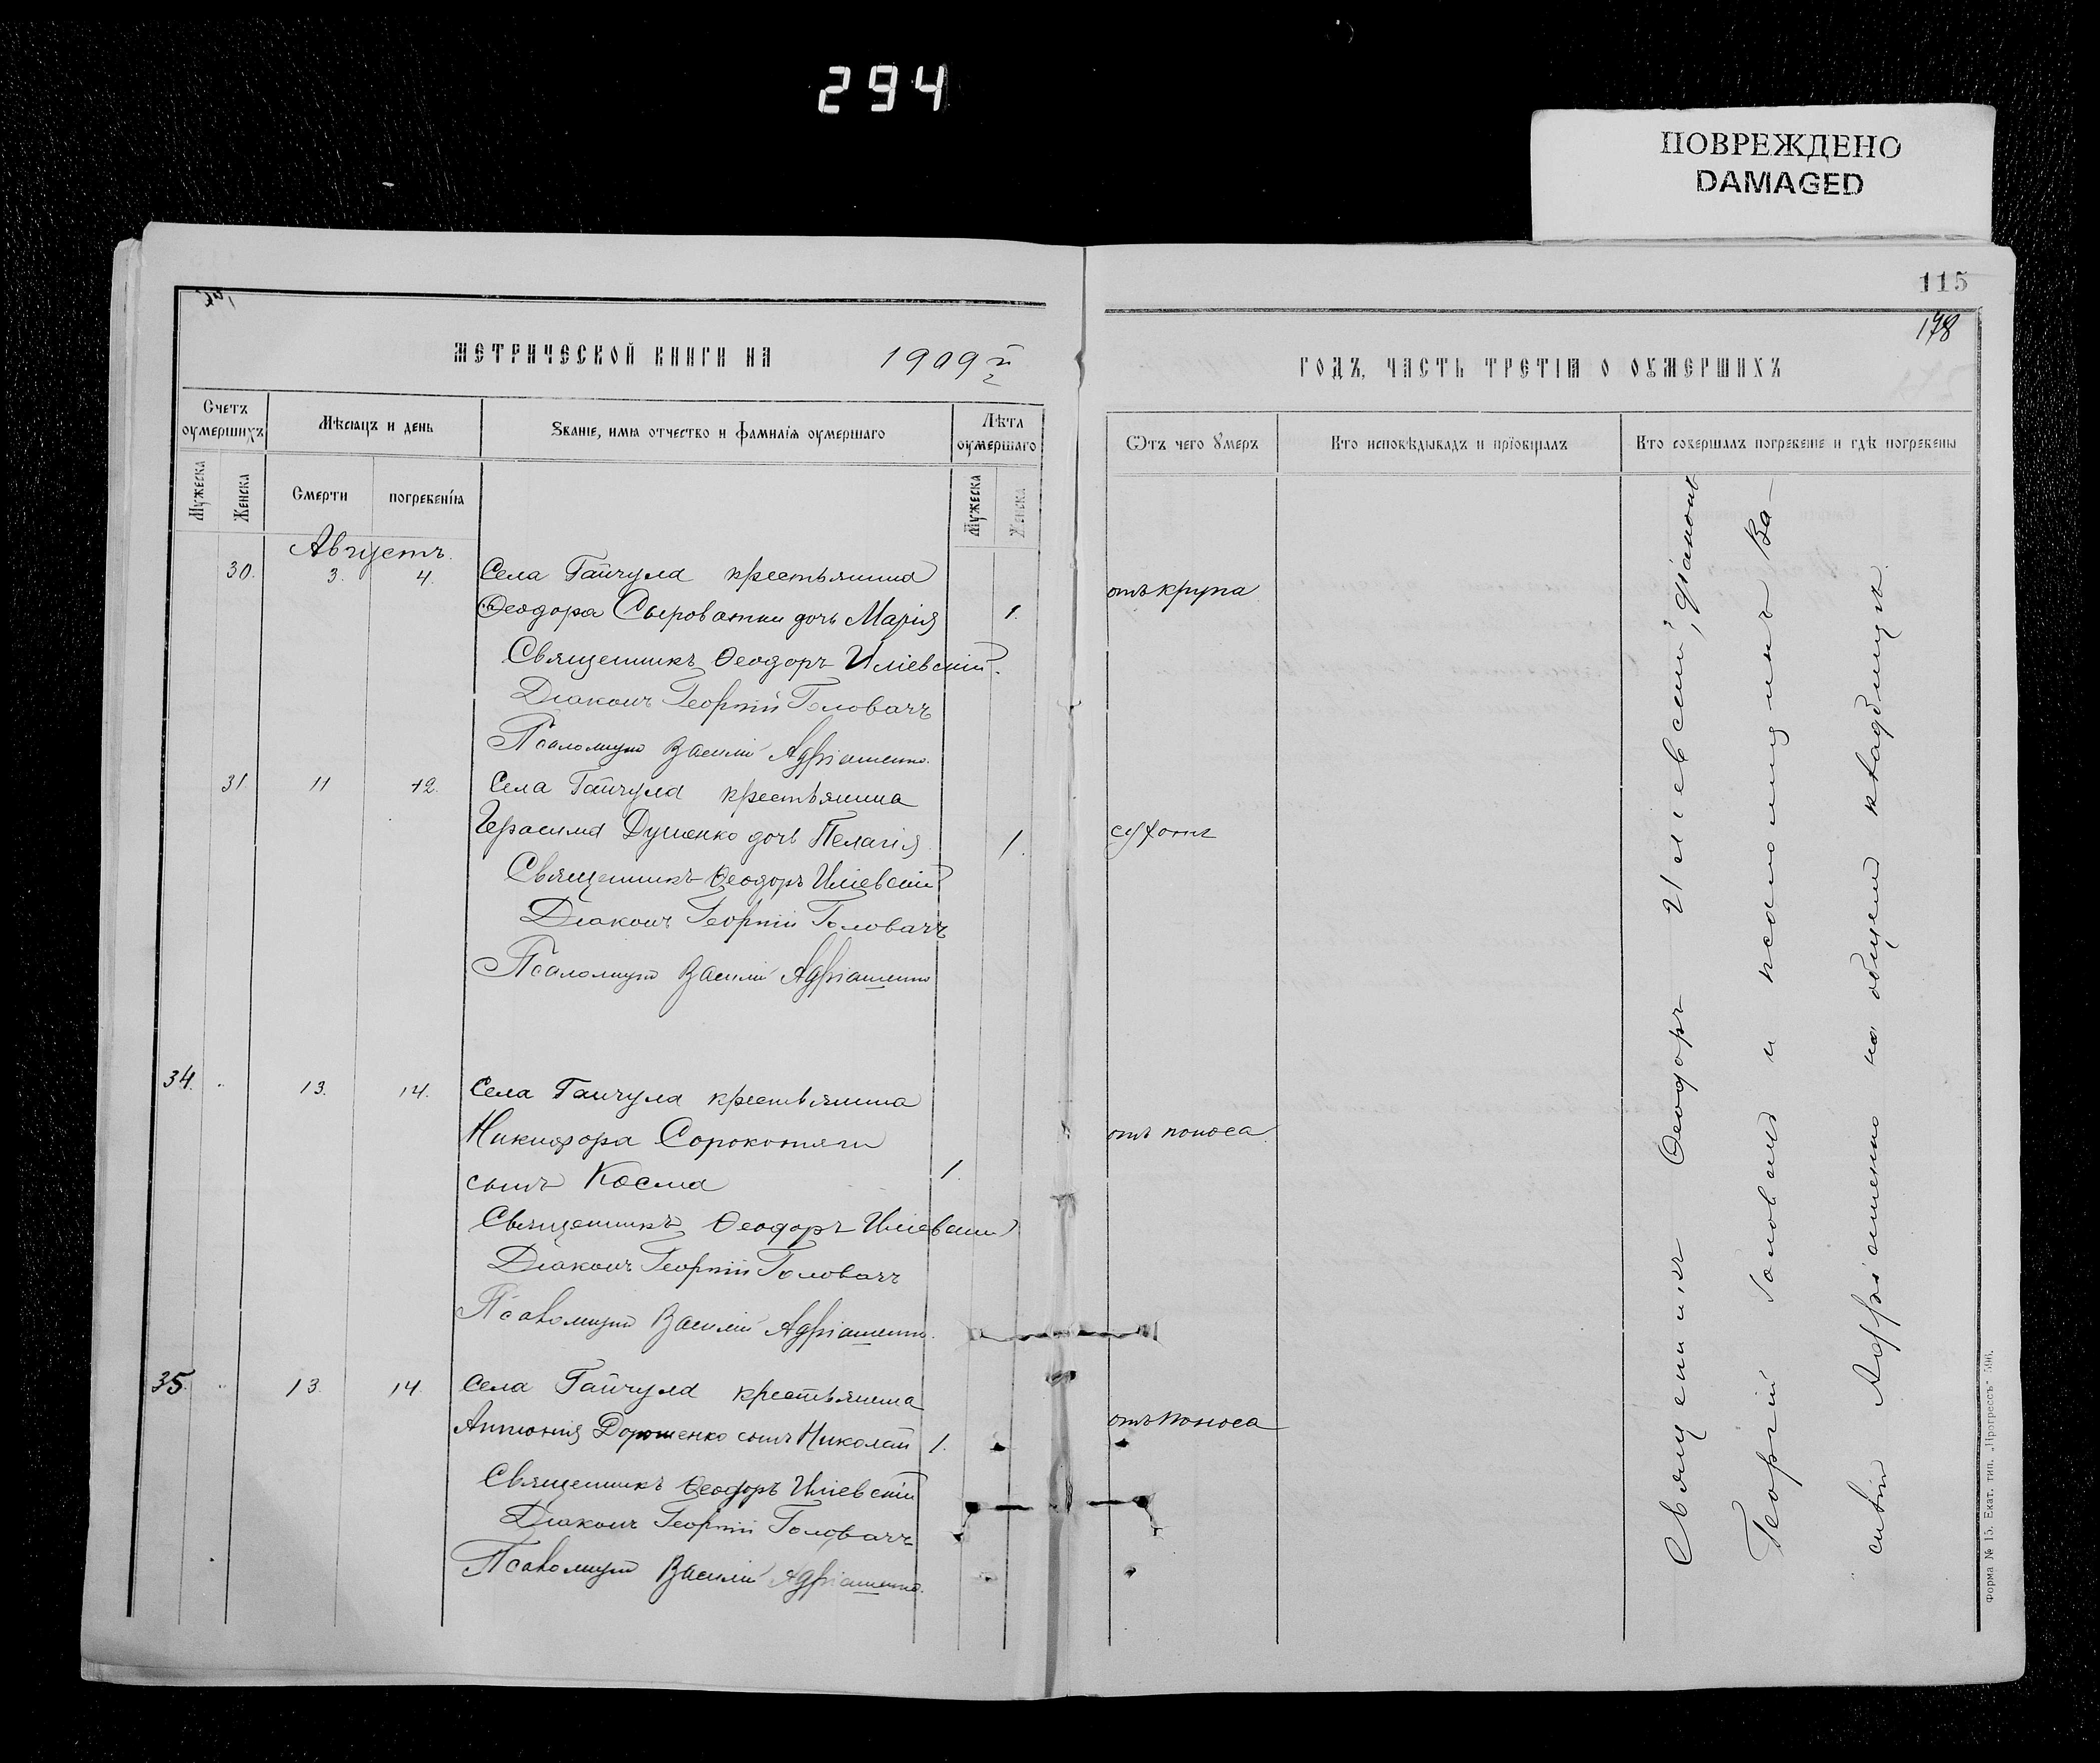 294
ПОВРЕЖДЕНО
DAMAGED
115
178
МЕТРИЧЕСКОЙ КНИГИ НА 1909 й
ГОДЪ, ЧАСТЬ ТРЕТІЯ О ОУМЕРШИХЪ
Счетъ оумершихъ
Мѣсяцъ и день
Званіе, имя отчество и фамилія оумершаго
Лѣта оумершаго
Ѿтъ чего оумеръ
Кто исповѣдывалъ и пріобщалъ
Кто совершалъ погребеніе и гдѣ погребены
Мужеска
Женска
Смерти
погребенія
Мужеска
Женска
Августъ.
30. 3. 4. Села Гайчула крестьянина
Ѳеодора Сыроватки дочь Марія 1. отъ крупа
Священникъ Ѳеодоръ Иліевскій.
Діаконъ Георгій Головачъ
Псаломщик Василій Адріашенко.
31. 11 12. Села Гайчула крестьянина
Герасима Душенко дочь Пелагія 1. сухоты
Священникъ Ѳеодоръ Иліевскій
Діаконъ Георгій Головачъ
Псаломщик Василій Адріашенко
34. 13. 14. Села Гайчула крестьянина
Никифора Сорокотяги отъ поноса.
сынъ Косма 1.
Священникъ Ѳеодоръ Иліевскій
Діаконъ Георгій Головачъ
Псаломщик Василій Адріашенко.
35. 13. 14. Села Гайчула крестьянина
Антонія Дорошенко сынъ Николай 1. отъ поноса
Священникъ Ѳеодоръ Иліевскій
Діаконъ Георгій Головачъ
Псаломщик Василій Адріашенко.
Священникъ Ѳеодоръ Иліевскій, діаконъ
Георгій Головачъ и псаломщикъ Ва-
силій Адріашенко на общемъ кладбищѣ.
Форма № 15. Екат. тип. „Прогрессъ"